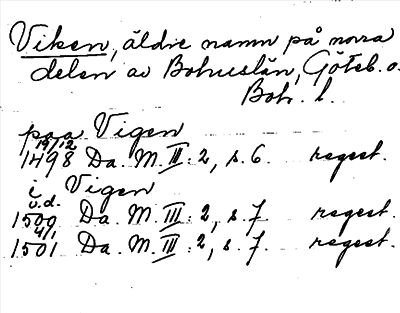 Viken, äldre namn på norra
delen av Bohuslän, Göteb. o.
Boh. l.
paa Vigen
19/12
1498 Da. M. III: 2, s. 6. regest.
i Vigen
u.d.
1500 Da. M. III: 2, s. 7. regest.
4/1
1501 Da. M. III: 2, s. 7. regest.